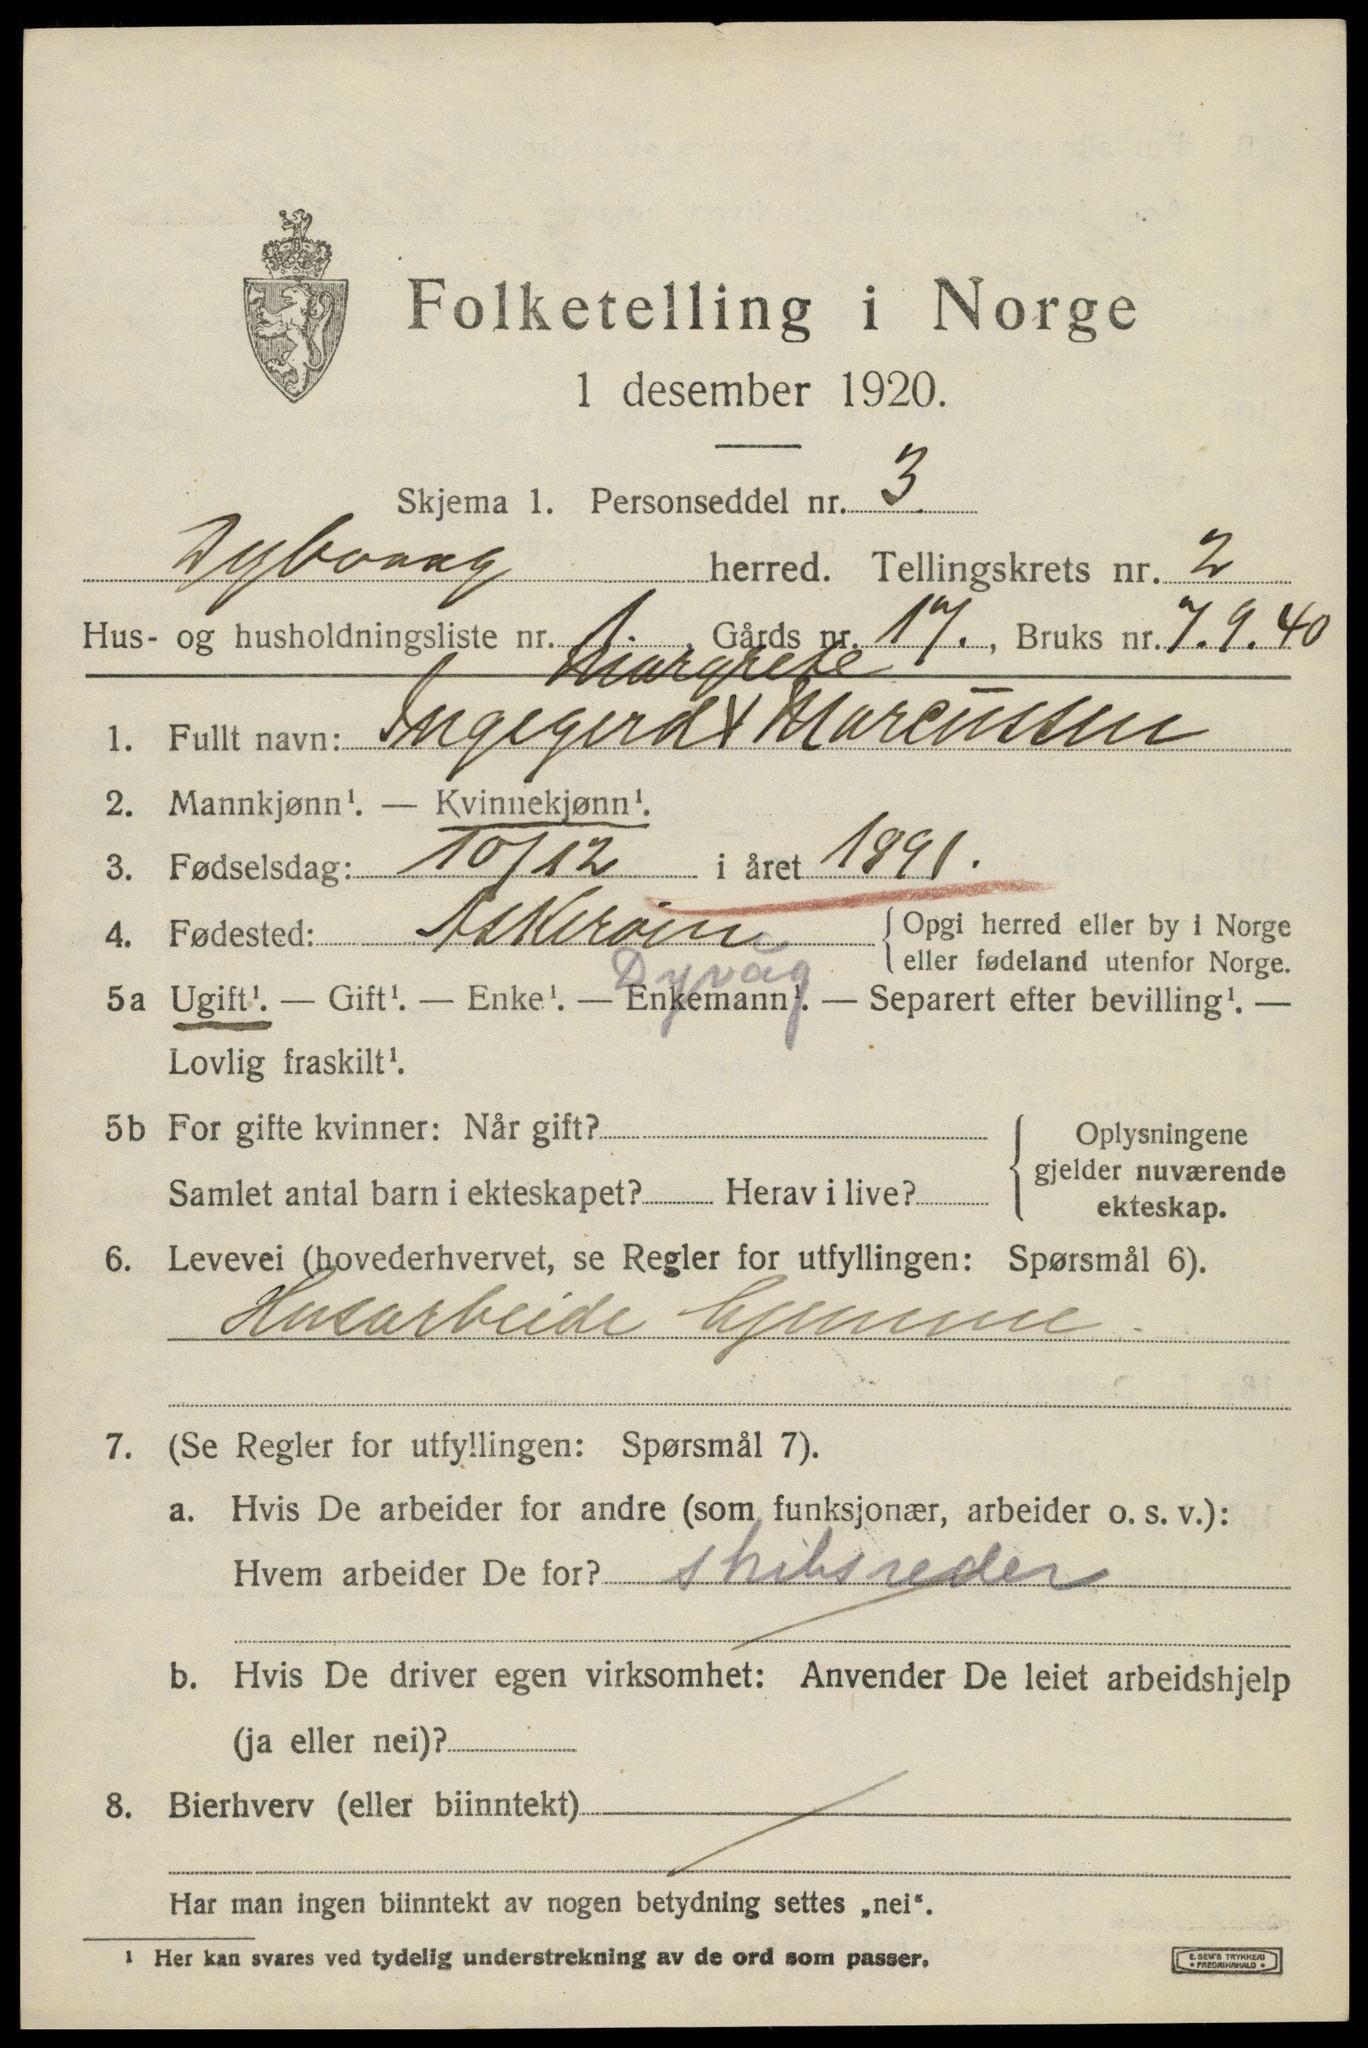 Folketelling i Norge
1 desember 1920.
Skjema 1. Personseddel nr. 3
Dybvaag herred. Tellingskrets nr. 2
Hus- og husholdningsliste nr. 1. , Gårds nr. 17. , Bruks nr. 7.9.40
Margrete
1. Fullt navn: Ingegerd x Marcussen
2. Mannkjønn¹. — Kvinnekjønn¹.
3. Fødselsdag: 10/12 i året 1891.
4. Fødested: Askerøien { Opgi herred eller by i Norge
eller fødeland utenfor Norge.
Dyvåg
5a Ugift¹. — Gift¹. — Enke¹. — Enkemann¹. — Separert efter bevilling¹. —
Lovlig fraskilt¹.
5b For gifte kvinner: Når gift? { Oplysningene
gjelder nuværende
Samlet antal barn i ekteskapet? Herav i live? ekteskap.
6. Levevei (hovederhvervet, se Regler for utfyllingen: Spørsmål 6).
Husarbeide hjemme.
7. (Se Regler for utfyllingen: Spørsmål 7).
a. Hvis De arbeider for andre (som funksjonær, arbeider o. s. v.):
Hvem arbeider De for? skibsreder
b. Hvis De driver egen virksomhet: Anvender De leiet arbeidshjelp
(ja eller nei)?
8. Bierhverv (eller biinntekt)
Har man ingen biinntekt av nogen betydning settes „nei“.
¹ Her kan svares ved tydelig understrekning av de ord som passer.
E. SEM'S TRYKKERI
• FREDRIKSHALD •